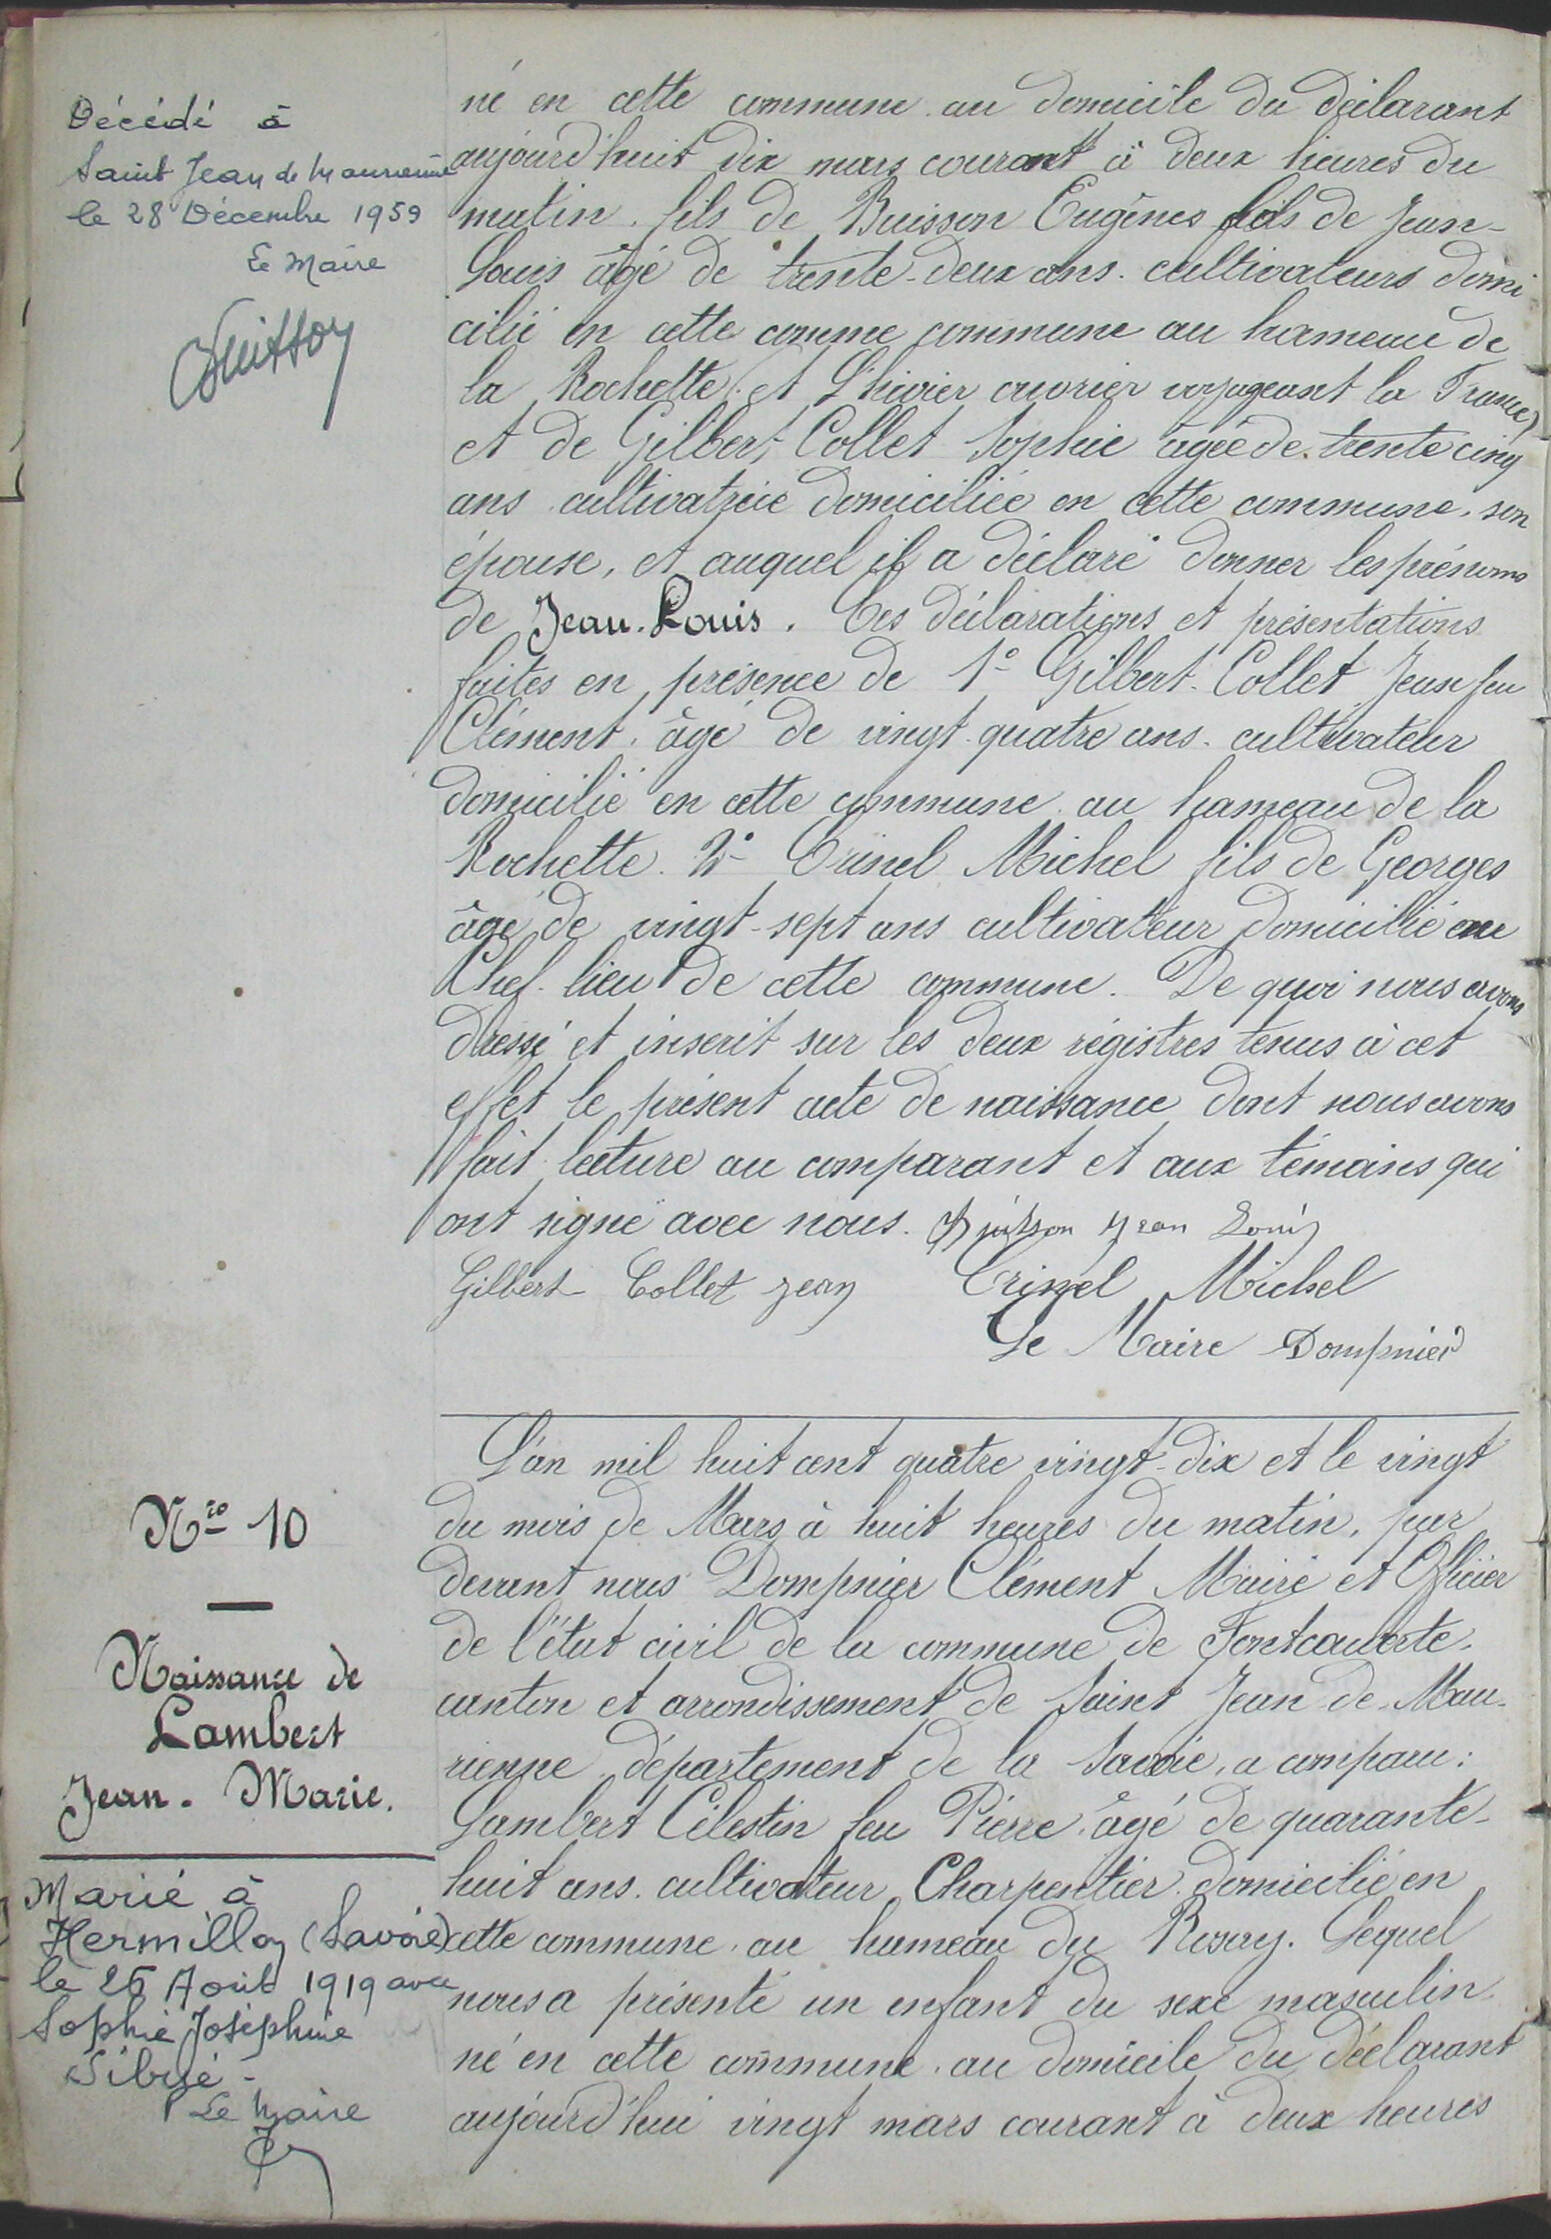 Décédé à
Saint Jean de Maurienne
le 28 Décembre 1959
Le Maire
né en cette commune au domicile du déclarant
aujourd'huit dix mars courant à deux heures du
matin. fils de Buisson Eugènes fils de Jean-
Louis âgé de trente-deux ans. cultivateurs domi
cilié en cette comme commune au hameau de
la Rochette (et L'hivier ouvrier voyageant la France)
et de Gilbert Collet Sophie âgée de trente cinq
ans cultivatrice domiciliée en cette commune. son
épouse, et auquel il a déclaré donner les prénoms
de Jean-Louis. Ces déclarations et présentations
faites en présence de 1° Gilbert-Collet Jean feu
Clément. âgé de vingt quatre ans. cultivateur
domicilié en cette commune au hameau de la
Rochette. 2° Crinel Michel fils de Georges
âgé de vingt-sept ans cultivateur domicilié au
Chef-lieu de cette commune. De quoi nous avons
dressé et inscrit sur les deux régistres tenus à cet
effet le présent acte de naissance dont nous avons
fait lecture au comparant et aux témoins qui
ont signé avec nous. Buisson Jean Louis
Gilbert Collet Jean Crinel Michel
Le Maire Dompnier
Nro 10
Naissance de
Lambert
Jean-Marie.
Marié à
Hermillon (Savoie)
le 26 Août 1919 avec
Sophie Joséphine
Sibué -
Le Maire
L'an mil huit cent quatre vingt-dix et le vingt
du mois de Mars à huit heures du matin, par
devant nous Dompnier Clément Maire et Officier
de l'état civil de la commune de Fontcouverte.
canton et arrondissement de Saint Jean de Mau-
rienne, département de la Savoie, a comparu:
Lambert Célestin feu Pierre âgé de quarante-
huit ans. cultivateur Charpentier domicilié en
cette commune au hameau du Rosay. Lequel
nous a présenté un enfant du sexe masculin
né en cette commune au domicile du déclarant
aujourd'hui vingt mars courant à deux heures